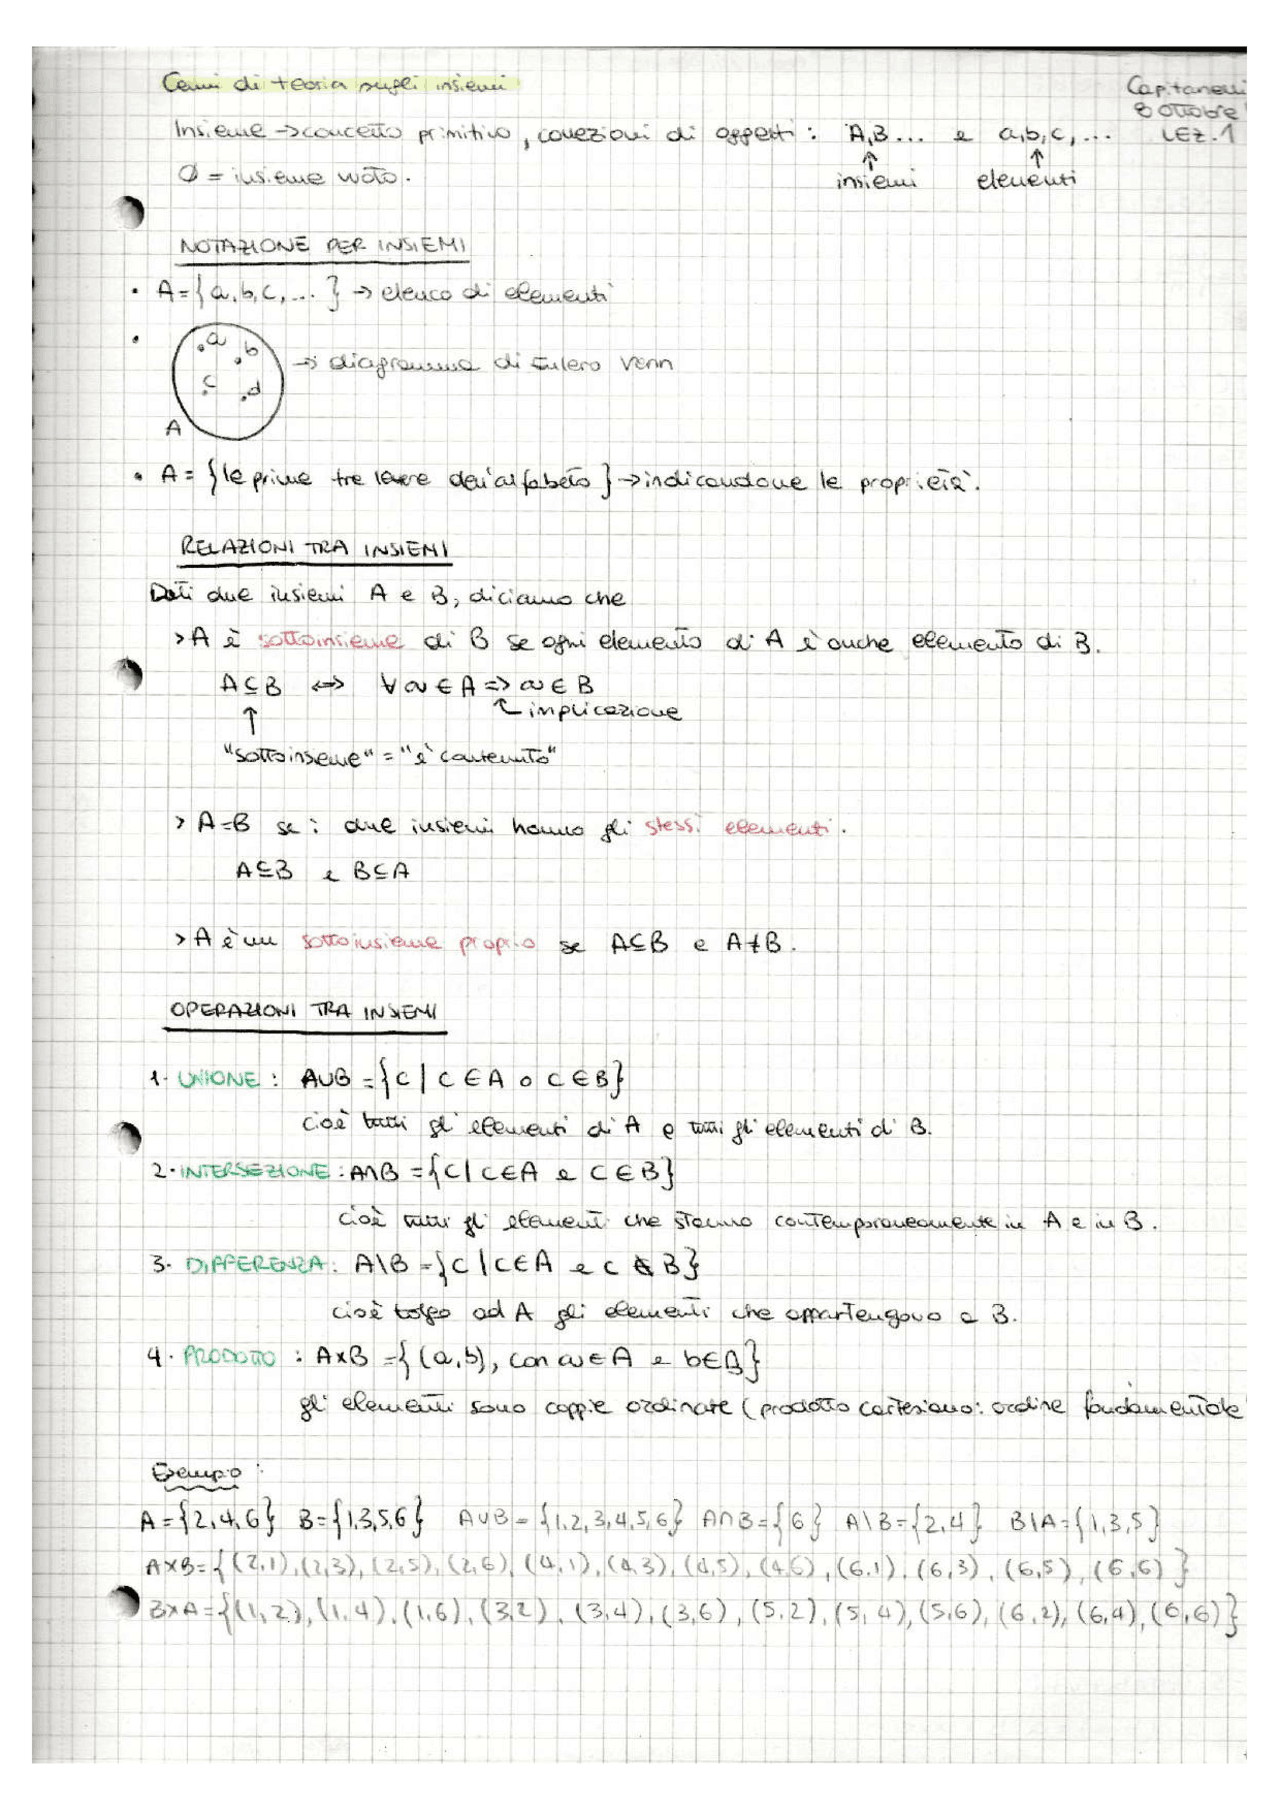 Cenni di teoria sugli insiemi
Capitanelli
8 ottobre
LEZ. 1
Insieme → concetto primitivo, collezioni di oggetti : A,B... e a,b,c,...
↑ ↑
insiemi elementi
Ø = insieme vuoto.
NOTAZIONE PER INSIEMI
• A={a,b,c,...} → elenco di elementi
• a b c d A → diagramma di Eulero Venn
• A= {le prime tre lettere dell'alfabeto} → indicandone le proprietà.
RELAZIONI TRA INSIEMI
Dati due insiemi A e B, diciamo che
> A è sottoinsieme di B se ogni elemento di A è anche elemento di B.
A⊆B ⟺ ∀a∈A ⇒ a∈B
↑ implicazione
"sottoinsieme" = "è contenuto"
> A=B se i due insiemi hanno gli stessi elementi.
A⊆B e B⊆A
> A è un sottoinsieme proprio se A⊆B e A≠B.
OPERAZIONI TRA INSIEMI
1. UNIONE : A∪B = {c | c∈A o c∈B}
cioè tutti gli elementi di A e tutti gli elementi di B.
2. INTERSEZIONE : A∩B = {c | c∈A e c∈B}
cioè tutti gli elementi che stanno contemporaneamente in A e in B.
3. DIFFERENZA : A\B = {c | c∈A e c∉B}
cioè tolgo ad A gli elementi che appartengono a B.
4. PRODOTTO : A×B = {(a,b), con a∈A e b∈B}
gli elementi sono coppie ordinate (prodotto cartesiano: ordine fondamentale
Esempio :
A={2,4,6} B={1,3,5,6} A∪B={1,2,3,4,5,6} A∩B={6} A\B={2,4} B\A={1,3,5}
A×B={(2,1),(2,3),(2,5),(2,6),(4,1),(4,3),(4,5),(4,6),(6,1),(6,3),(6,5),(6,6)}
B×A={(1,2),(1,4),(1,6),(3,2),(3,4),(3,6),(5,2),(5,4),(5,6),(6,2),(6,4),(6,6)}